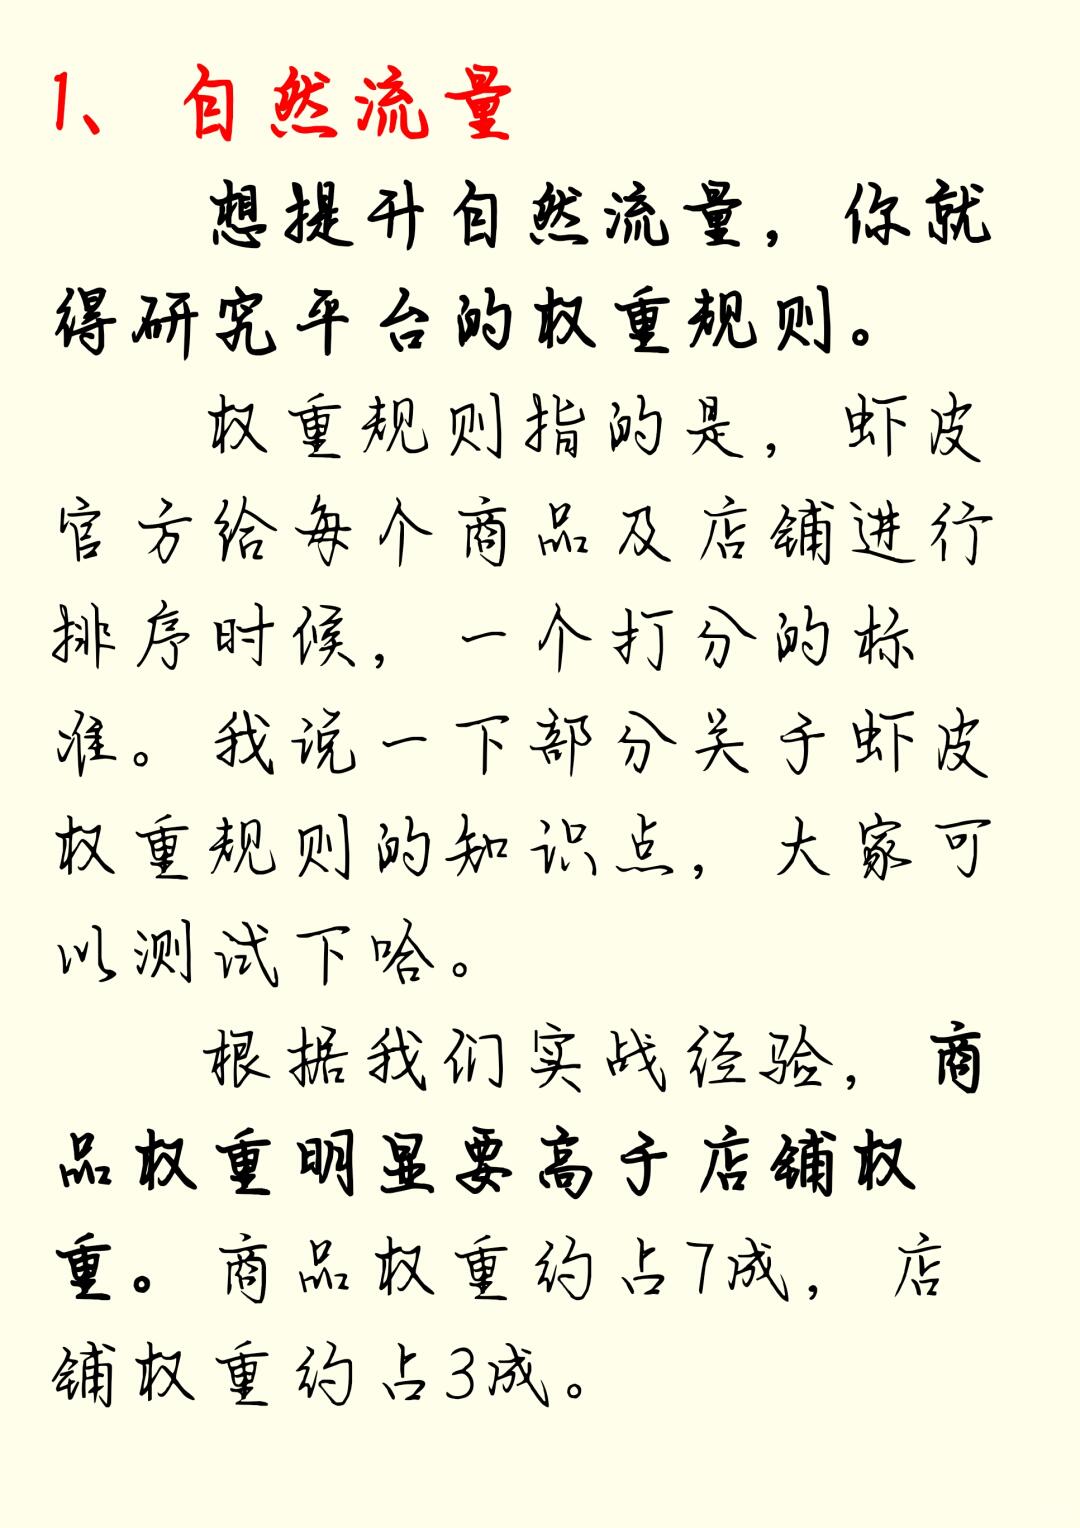 1、自然流量
想提升自然流量，你就
得研究平台的权重规则。
权重规则指的是，虾皮
官方给每个商品及店铺进行
排序时候，一个打分的标
准。我说一下部分关于虾皮
权重规则的知识点，大家可
以测试下哈。
根据我们实战经验，商
品权重明显要高于店铺权
重。商品权重约占7成，店
铺权重约占3成。